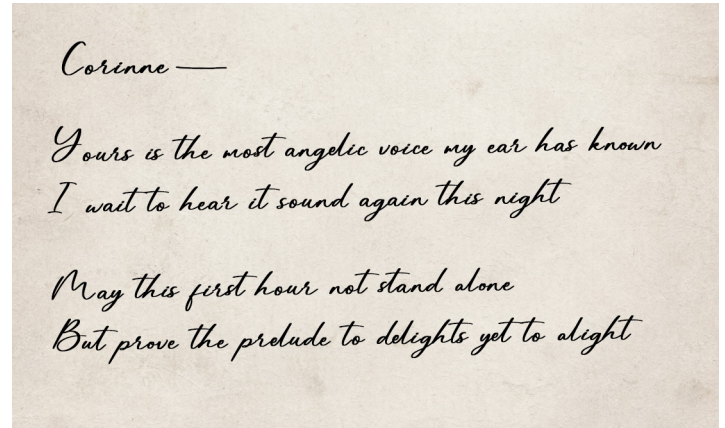 Corinne —
Yours is the most angelic voice my ear has known
I wait to hear it sound again this night
May this first hour not stand alone
But prove the prelude to delights yet to alight